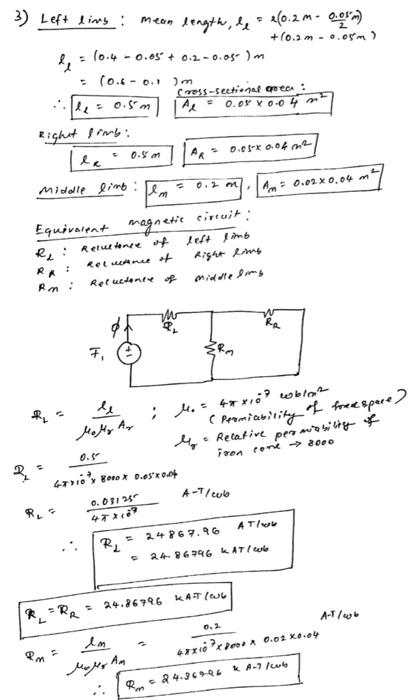 3) Left limb : mean length, l_l = 2(0.2m - 0.05m/2)
+(0.2m - 0.05m)
l_l = (0.4 - 0.05 + 0.2 - 0.05) m
= (0.6 - 0.1) m
∴ l_l = 0.5m
Cross-sectional area :
A_l = 0.05 x 0.04 m²
Right limb :
l_R = 0.5m , A_R = 0.05x0.04 m²
Middle limb : l_m = 0.2 m , A_m = 0.02x0.04 m²
Equivalent magnetic circuit :
R_L : Reluctance of left limb
R_R : Reluctance of Right limb
R_m : Reluctance of middle limb
φ R_L R_R
F_1 + R_m
R_L = l_l / μ₀μ_r A_r ; μ₀ = 4π x10^-7 wb/m²
(Permiability of free space)
μ_r = Relative permiability of
iron core → 8000
R_L = 0.5 / 4πx10^-7 x 8000 x 0.05x0.04
R_L = 0.03125 / 4πx10^-7 A-T/wb
∴ R_L = 24867.96 AT/wb
= 24.86796 kAT/wb
R_L = R_R = 24.86796 kA-T/wb
R_m = l_m / μ₀μ_r A_m = 0.2 / 4πx10^-7 x 8000 x 0.02x0.04 A-T/wb
∴ R_m = 24.86796 k A-T/wb